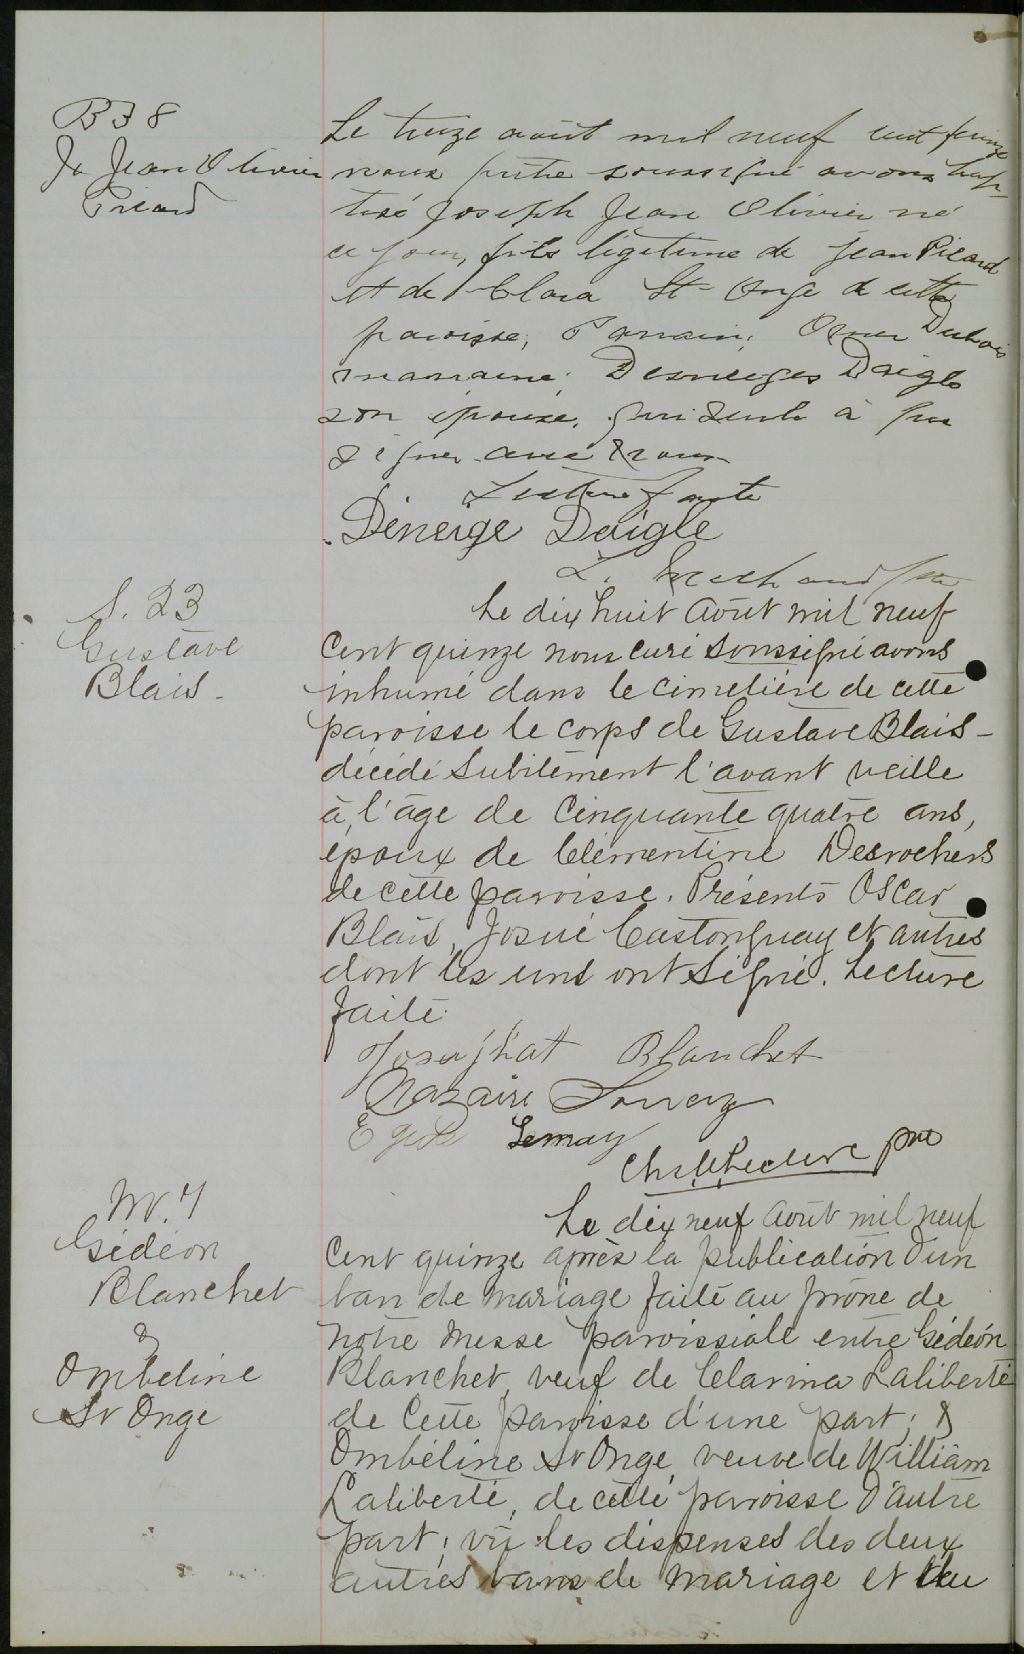 B38
Js Jean Olivier
Picard
Le treize août mil neuf cent quinze
nous prêtre soussigné avons bap-
tisé Joseph Jean Olivier né
ce jour, fils légitime de Jean Picard
et de Clara St-Onge de cette
paroisse; Parrain; Omer Dubois
marraine; Desneiges Daigle
son épouse, qui seule a pu
signer avec nous
Lecture faite
Déneige Daigle
S. 23
Gustave
Blais -
Le dix huit août mil neuf
cent quinze nous curé soussigné avons
inhumé dans le cimetière de cette
paroisse le corps de Gustave Blais -
décédé subitement l'avant veille
à l'âge de cinquante quatre ans,
époux de Clémentine Desrochers
de cette paroisse. Présents Oscar
Blais, Josué Castonguay et autres
dont les uns ont signé. Lecture
faite
Josaphat Blanchet
Nazaire
Lemay ptre
M. 7
Gédéon
Blanchet
&
Ombéline
St Onge
Le dix neuf août mil neuf
cent quinze après la publication d'un
ban de mariage faite au prône de
notre messe paroissiale entre Gédéon
Blanchet, veuf de Clarina Laliberté
de cette paroisse d'une part; &
Ombéline St Onge, veuve de William
Laliberté, de cette paroisse d'autre
part; vu les dispenses des deux
autres bans de mariage et vu